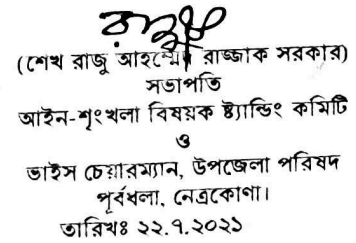 (শেখ রাজু আহম্মেদ রাজ্জাক সরকার)
সভাপতি
আইন-শৃংখলা বিষয়ক ষ্ট্যান্ডিং কমিটি
ও
ভাইস চেয়ারম্যান, উপজেলা পরিষদ
পূর্বধলা, নেত্রকোণা।
তারিখঃ ২২.৭.২০২১